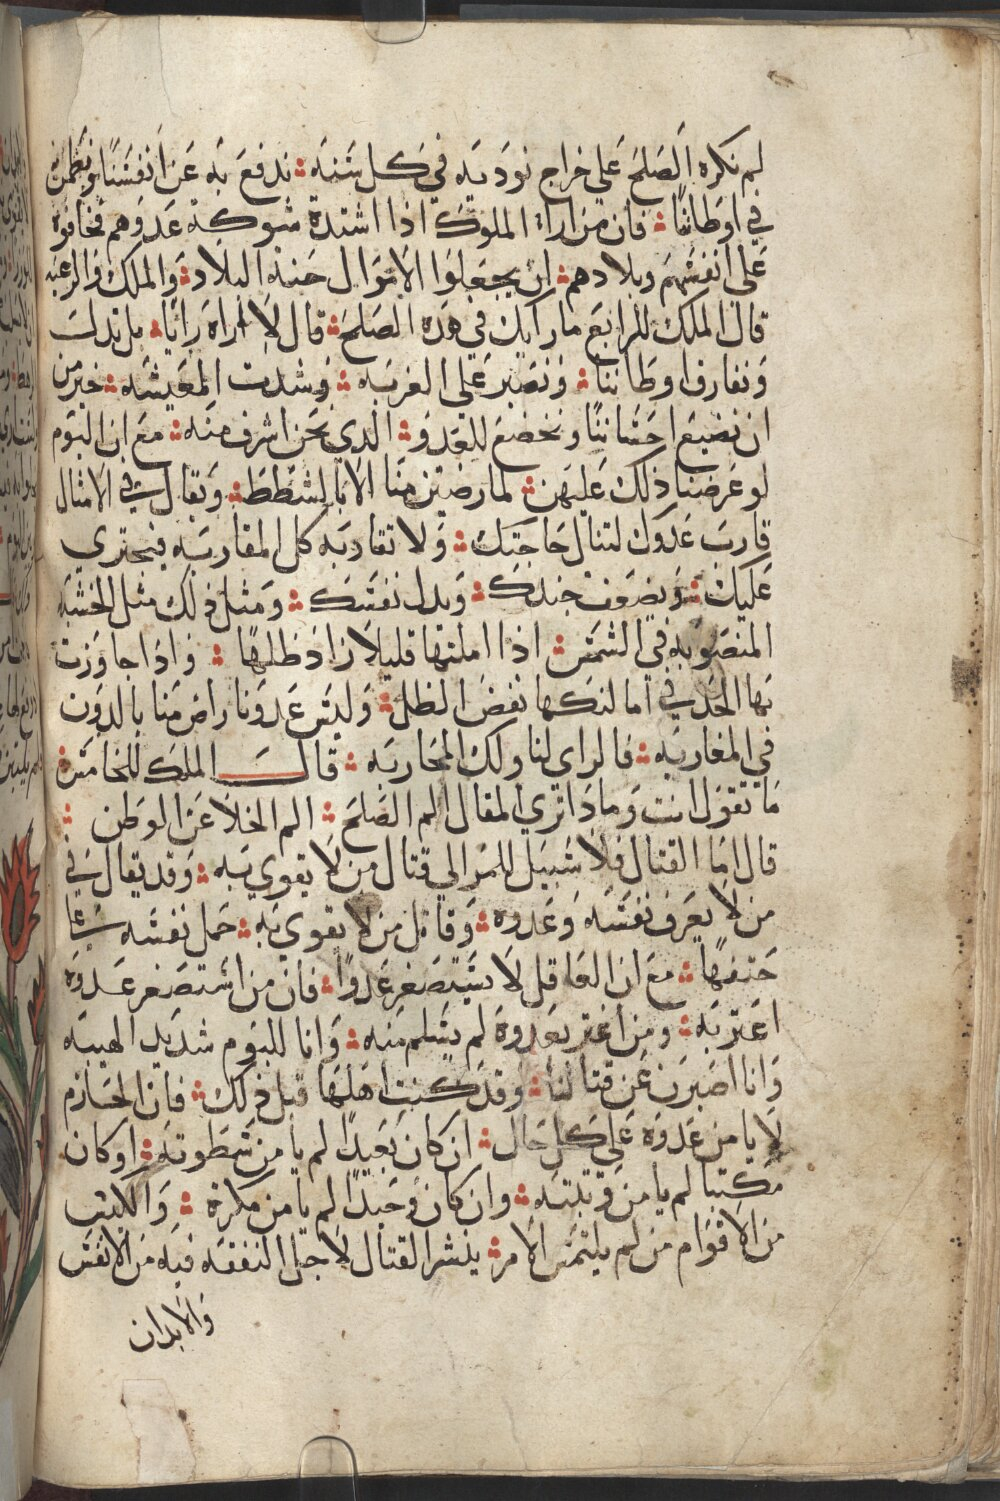 لم نكره الصلح علي خراج نوديه في كل سنه ؞ ندفع به عن انفسنا ونطمن
في اوطاننا ؞ فان من اراء الملوك اذا اشتدة شوكة عدوهم فخافوه
علي انفسهم وبلادهم ؞ ان يجعلوا الاموال جنة البلاد ؞ والملك والرعيه
قال الملك للرابع ما رايك في هده الصلح ؞ قال لا اراه رايا ؞ بل ندلت
ونفارق اوطاننا ؞ ونصبر علي الغربه ؞ وشدت المعيشه ؞ خير من
ان نضيع احسابنا ونخضع للعدو ؞ الدي نحن اشرف منه ؞ مع ان اليوم
لو عرضنا ذلك عليهن ؞ لما رضين منا الا بالشطط ؞ ويقال في الامثال
قارب عدوك لتنال حاجتك ؞ ولا تقاربه كل المقاربه فيجتري
عليك ؞ ويضعف جندك ؞ ويدل نفسك ؞ ومثل ذلك مثل الخشبه
المنصوبه في الشمس ؞ اذا املتها قليلا زاد ظلها ؞ واذا جاوزت
بها الحد في امالتكها نقض الظل ؞ وليس عدونا راض منا بالدون
في المقاربه ؞ فالراي لنا ولك المحاربه ؞ قال الملك للخامس ؞
ما تقول انت وماذا تري القتال ام الصلح ؞ ام الخلا عن الوطن ؞
قال اما القتال فلا سبيل للمر الي قتال من لا يقوي به ؞ وقد يقال في
من لا يعرف نفسه وعدوه ؞ وقاتل من لا يقوي به ؞ حمل نفسه علي
حتفها ؞ مع ان العاقل لا يستصغر عدوا ؞ فان من استصغر عدوه
اغتر به ؞ ومن اغتر بعدوه لم يسلم منه ؞ وانا للبوم شديد الهيبه
وانا اضبرن عن قتالنا ؞ وقد كنت اهلها قبل ذلك ؞ فان الحازم
لا يامن عدوه علي كل حال ؞ ان كان بعيدا لم يامن شطوته ؞ او كان
مكتبا لم يامن وتبته ؞ وان كان وحيدا لم يامن مكره ؞ والايب
من الاقوام من لم يلتمس الامر ؞ ينشر القتال لاجل النفقه فيه من الانفس
والابدان